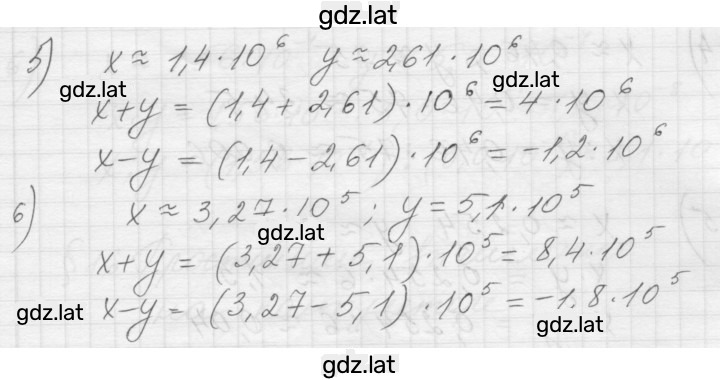 gdz.lat
5) x ≈ 1,4·10⁶ y ≈ 2,61·10⁶
gdz.lat gdz.lat
x+y = (1,4+2,61)·10⁶ = 4·10⁶
x-y = (1,4-2,61)·10⁶ = -1,2·10⁶
6) x ≈ 3,27·10⁵; y = 5,1·10⁵
gdz.lat
x+y = (3,27+5,1)·10⁵ = 8,4·10⁵
x-y = (3,27-5,1)·10⁵ = -1.8·10⁵
gdz.lat gdz.lat
gdz.lat